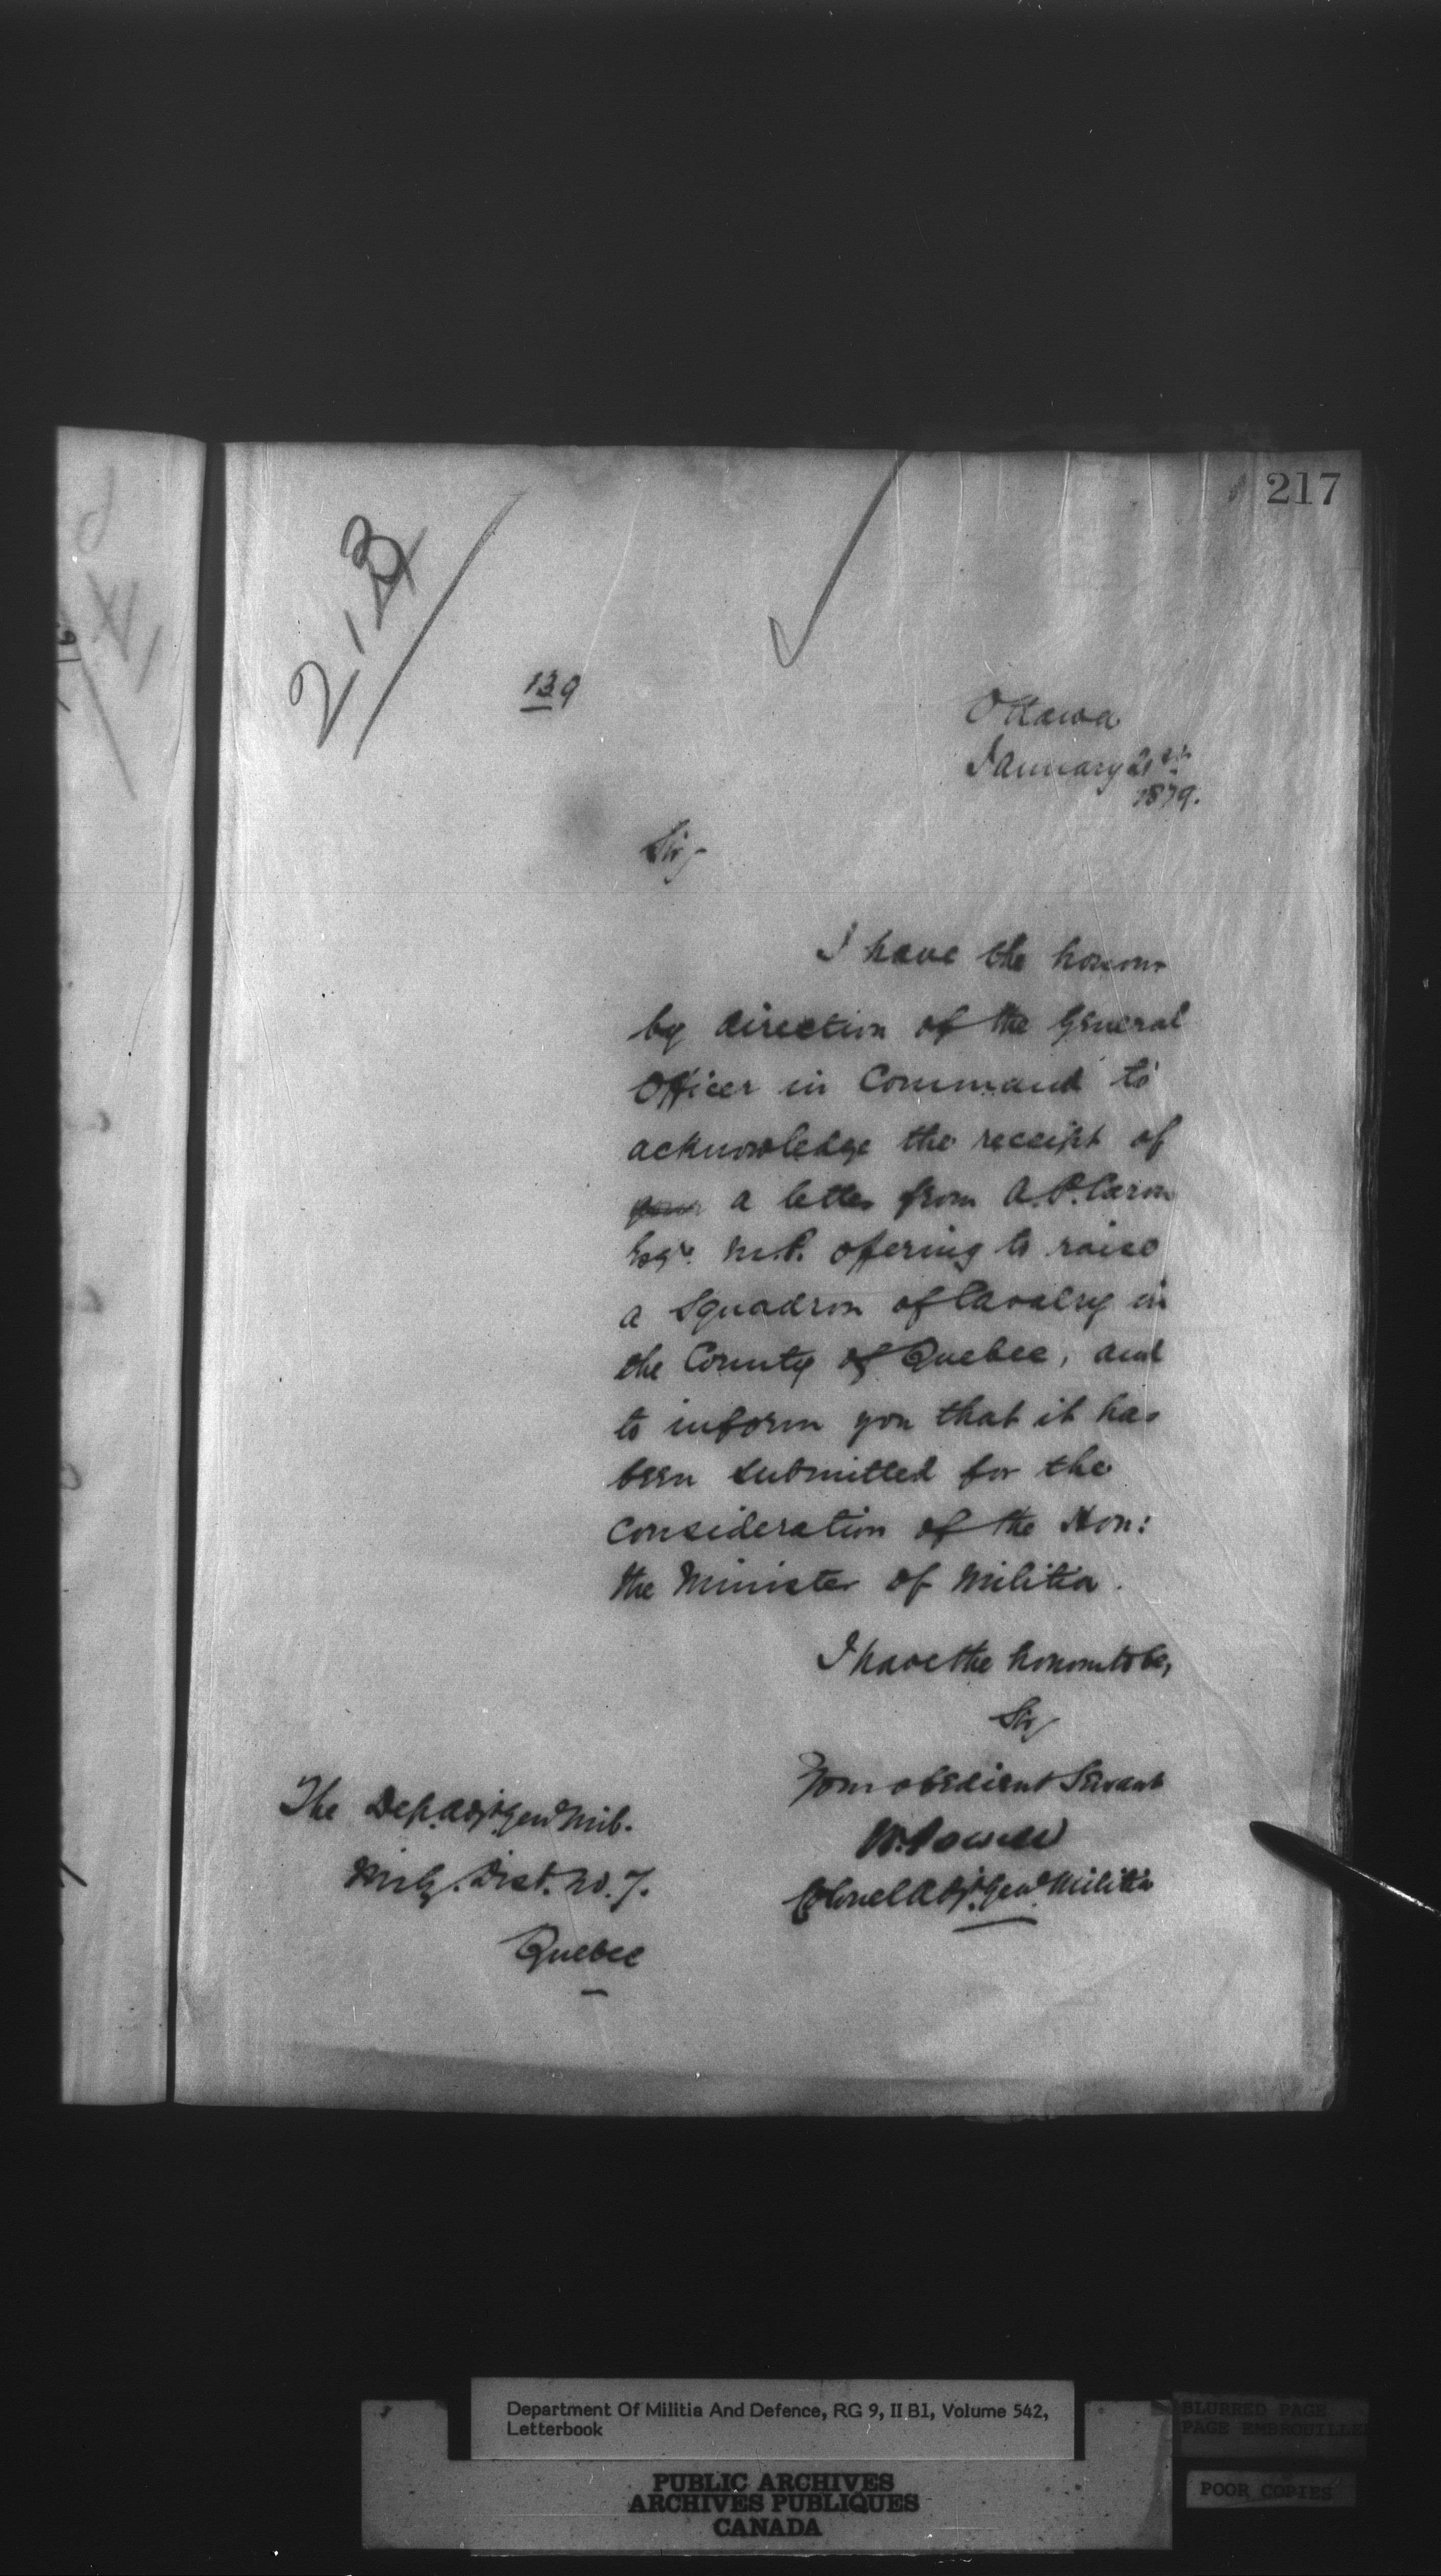 217
139
Ottawa
January 21st
1879.
Sir,
I have the honour
by direction of the General
Officer in Command to
acknowledge the receipt of
your a letter from A.P. Caron
Esqr. M.P. offering to raise
a Squadron of Cavalry in
the County of Quebec, and
to inform you that it has
been submitted for the
consideration of the Hon:
the Minister of Militia.
I have the honour to be,
Sir,
Your obedient Servant
W. Powell
Colonel Adjt. Genl. Militia
The Dep. Adjt. Genl. Mil.
Mily. Dist. No. 7.
Quebec
Department Of Militia And Defence, RG 9, II B1, Volume 542,
Letterbook
PUBLIC ARCHIVES
ARCHIVES PUBLIQUES
CANADA
BLURRED PAGE
PAGE EMBROUILLE
POOR COPIES